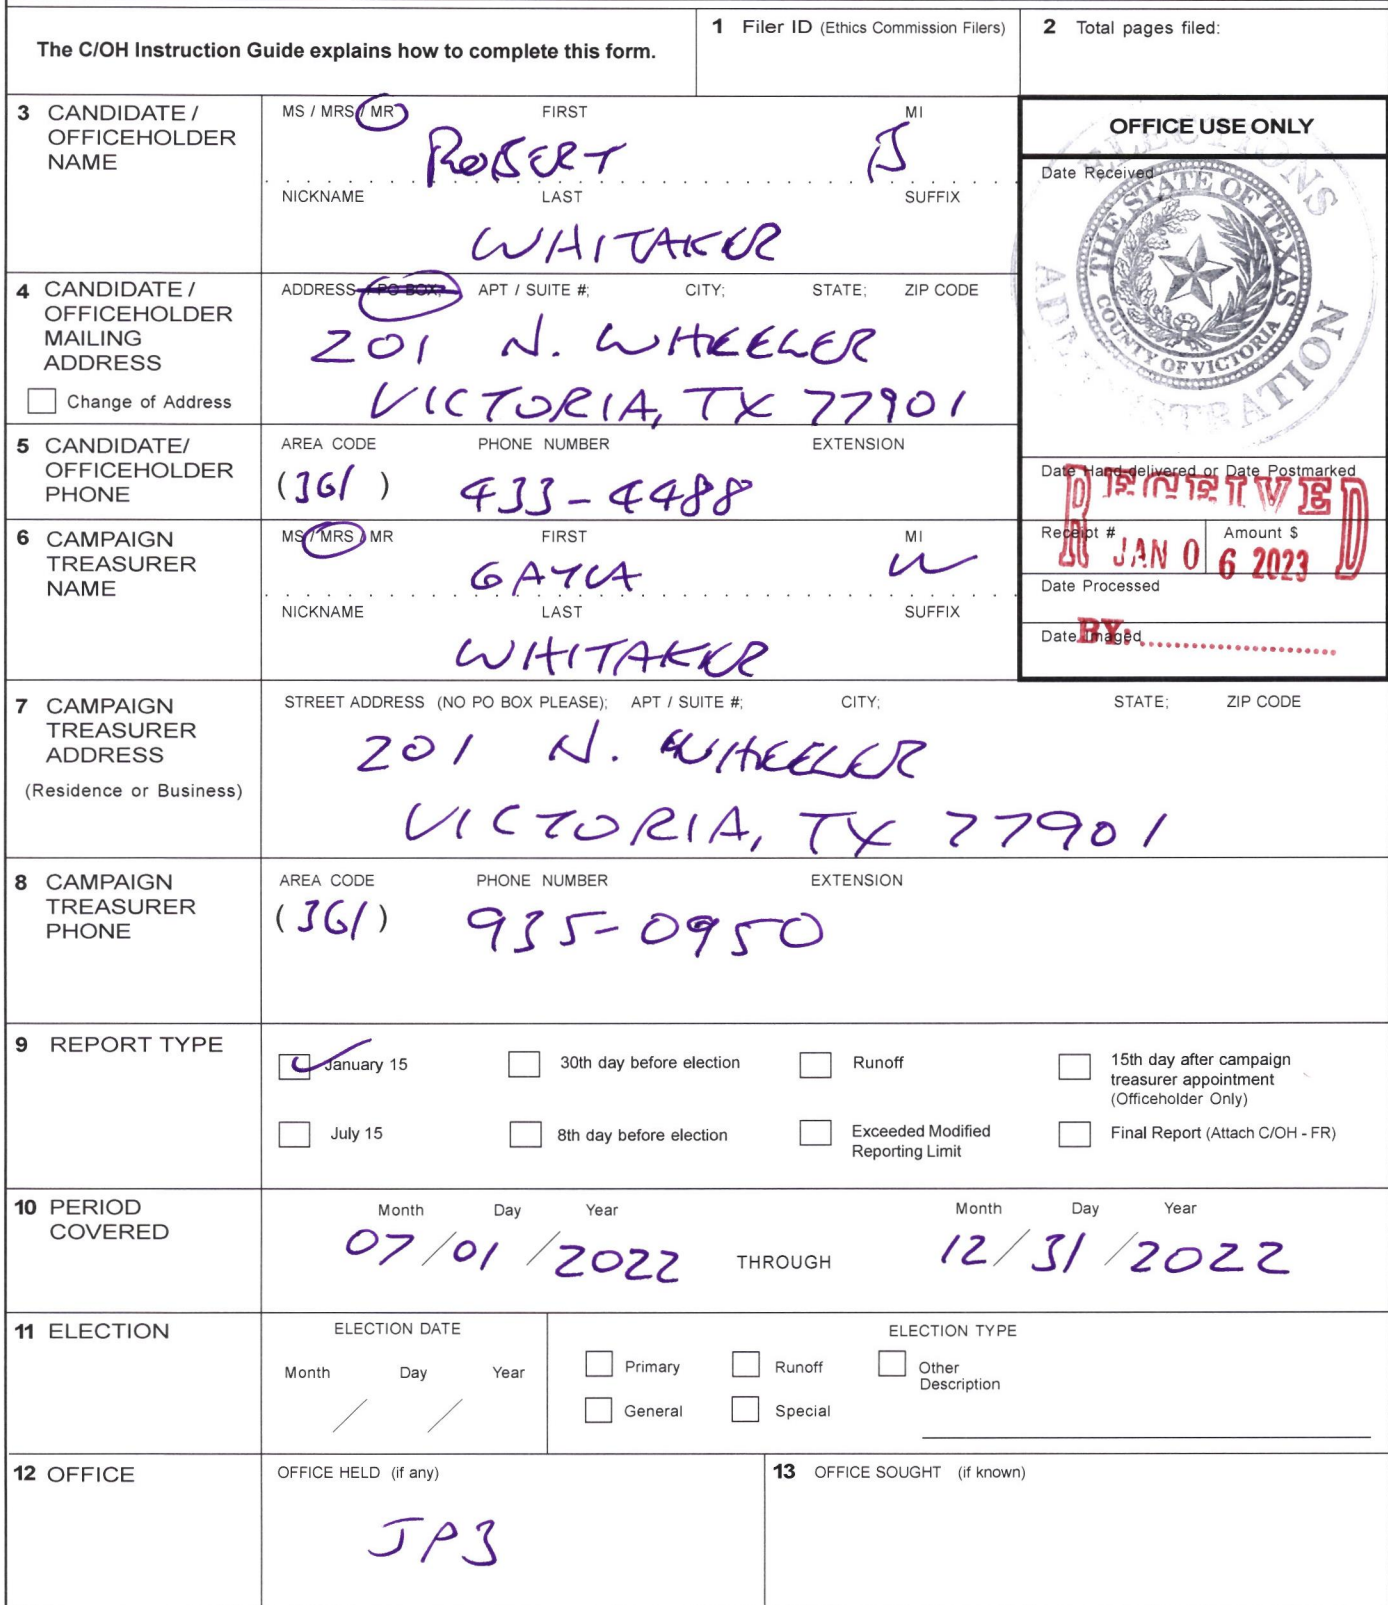 The C/OH Instruction Guide explains how to complete this form.
1 Filer ID (Ethics Commission Filers)
2 Total pages filed:
3 CANDIDATE / OFFICEHOLDER NAME
MS / MRS / MR FIRST MI
ROBERT B
NICKNAME LAST SUFFIX
WHITAKER
OFFICE USE ONLY
Date Received
ELECTIONS ADMINISTRATION
THE STATE OF TEXAS
COUNTY OF VICTORIA
4 CANDIDATE / OFFICEHOLDER MAILING ADDRESS
Change of Address
ADDRESS / PO BOX; APT / SUITE #; CITY; STATE; ZIP CODE
201 N. WHEELER
VICTORIA, TX 77901
5 CANDIDATE/ OFFICEHOLDER PHONE
AREA CODE PHONE NUMBER EXTENSION
(361) 433-4488
Date Hand-delivered or Date Postmarked
RECEIVED
Receipt # Amount $
JAN 06 2023
Date Processed
Date Imaged
BY:
6 CAMPAIGN TREASURER NAME
MS / MRS / MR FIRST MI
GAYLA W
NICKNAME LAST SUFFIX
WHITAKER
7 CAMPAIGN TREASURER ADDRESS
(Residence or Business)
STREET ADDRESS (NO PO BOX PLEASE); APT / SUITE #; CITY; STATE; ZIP CODE
201 N. WHEELER
VICTORIA, TX 77901
8 CAMPAIGN TREASURER PHONE
AREA CODE PHONE NUMBER EXTENSION
(361) 935-0950
9 REPORT TYPE
January 15 30th day before election Runoff 15th day after campaign treasurer appointment (Officeholder Only)
July 15 8th day before election Exceeded Modified Reporting Limit Final Report (Attach C/OH - FR)
10 PERIOD COVERED
Month Day Year Month Day Year
07/01/2022 THROUGH 12/31/2022
11 ELECTION
ELECTION DATE
Month Day Year
/ /
ELECTION TYPE
Primary Runoff Other Description
General Special
12 OFFICE
OFFICE HELD (if any)
JP3
13 OFFICE SOUGHT (if known)